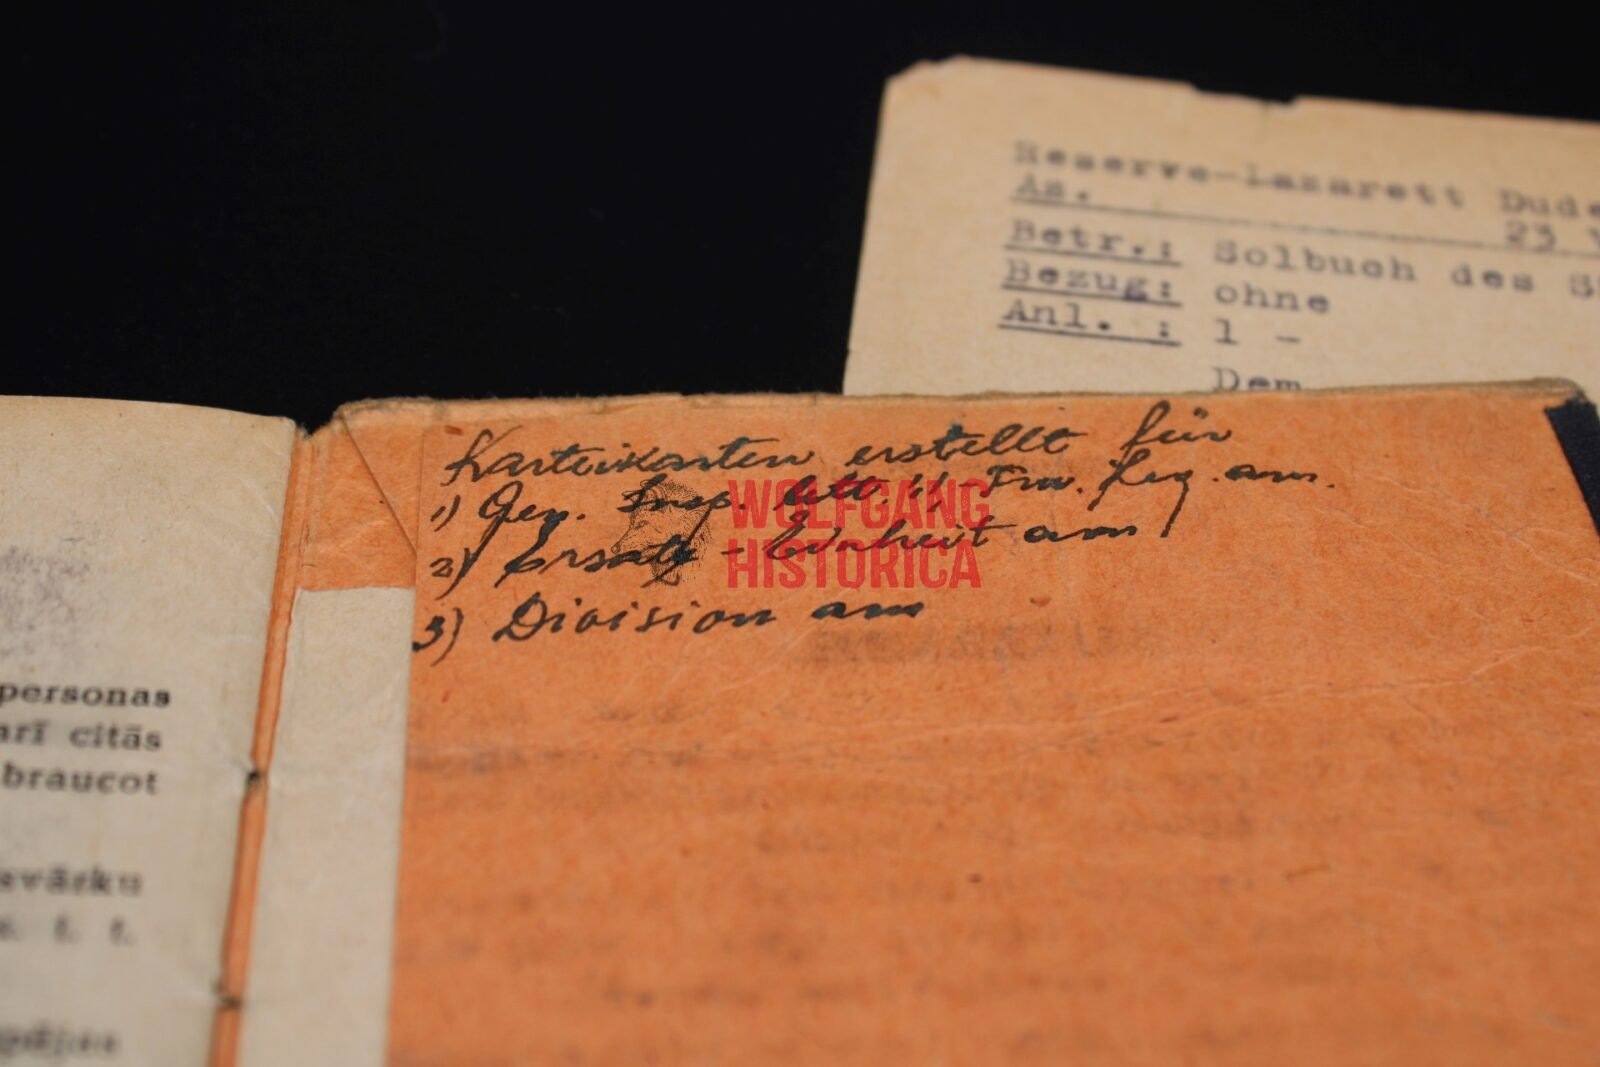 Reserve-Lazarett Dude
Az.
23 V
Betr.: Solbuch des S
Bezug: ohne
Anl. : 1 -
Dem
Karteikarten erstellt für
1) Gen. Insp. lett. SS-Frw. Leg. am.
2) Ersatz-Einheit am
3) Division am
WOLFGANG
HISTORICA
personas
arī citās
braucot
svārku
s. t. t.